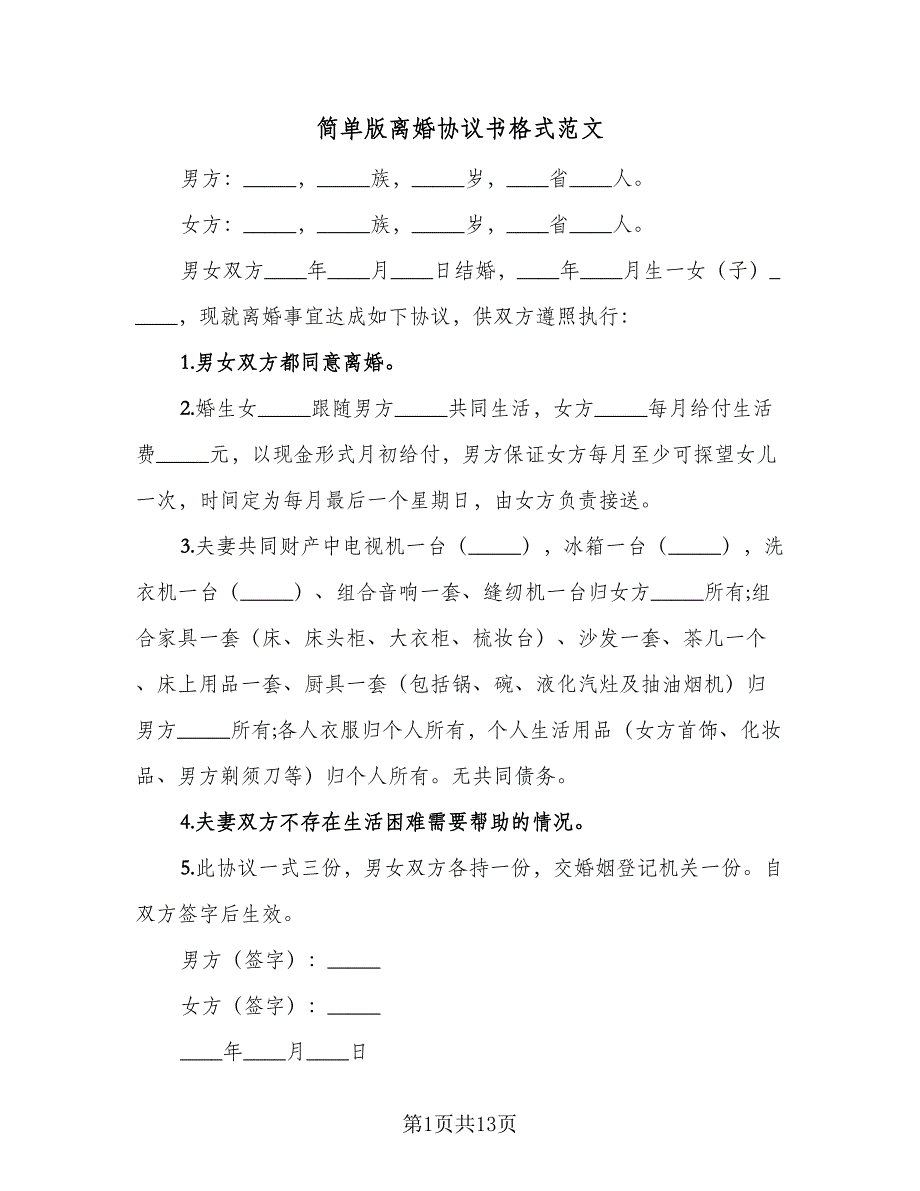 简单版离婚协议书格式范文
男方：_____，_____族，_____岁，____省____人。
女方：_____，_____族，_____岁，____省____人。
男女双方____年____月____日结婚，____年____月生一女（子）_
____，现就离婚事宜达成如下协议，供双方遵照执行：
1.男女双方都同意离婚。
2.婚生女_____跟随男方_____共同生活，女方_____每月给付生活
费_____元，以现金形式月初给付，男方保证女方每月至少可探望女儿
一次，时间定为每月最后一个星期日，由女方负责接送。
3.夫妻共同财产中电视机一台（_____），冰箱一台（_____），洗
衣机一台（_____）、组合音响一套、缝纫机一台归女方_____所有;组
合家具一套（床、床头柜、大衣柜、梳妆台）、沙发一套、茶几一个
、床上用品一套、厨具一套（包括锅、碗、液化汽灶及抽油烟机）归
男方_____所有;各人衣服归个人所有，个人生活用品（女方首饰、化妆
品、男方剃须刀等）归个人所有。无共同债务。
4.夫妻双方不存在生活困难需要帮助的情况。
5.此协议一式三份，男女双方各持一份，交婚姻登记机关一份。自
双方签字后生效。
男方（签字）：_____
女方（签字）：_____
____年____月____日
第1页共13页